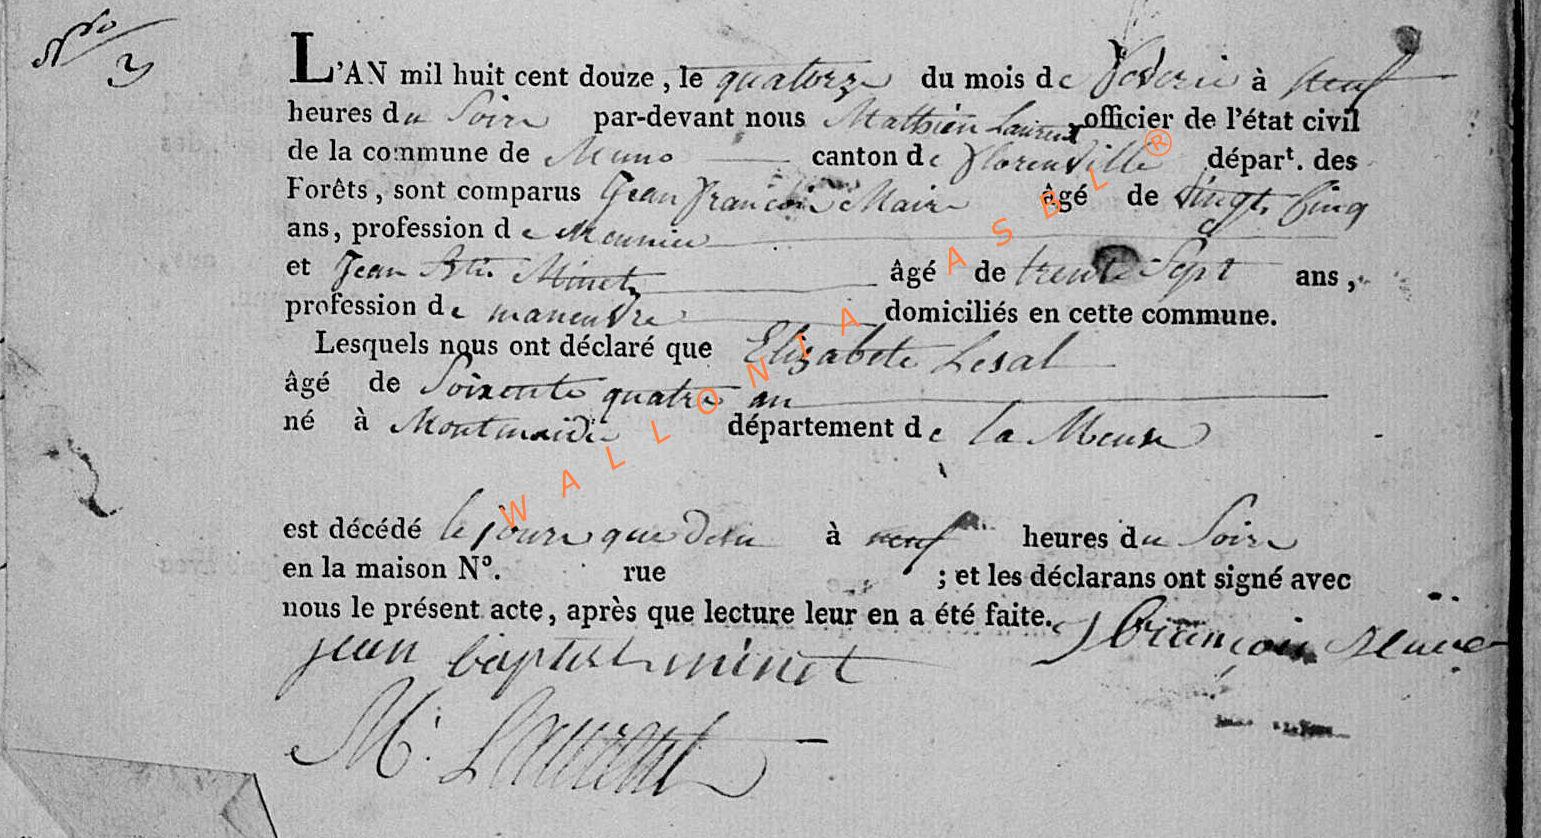 No 3
L'AN mil huit cent douze, le quatorze du mois de Feverie à neuf
heures du Soire par-devant nous Mathieu Laurent officier de l'état civil
de la commune de Muno canton de florenville départ. des
Forêts, sont comparus Jean françois Maire âgé de vingt Cinq
ans, profession de Meunier
et Jean Bte Minet âgé de trente Sept ans,
profession de maneuvre domiciliés en cette commune.
Lesquels nous ont déclaré que Elizabete Lesal
âgé de Soixente quatre an
né à Montmaidie département de la Meuse
est décédé le jour que desu à neuf heures du Soire
en la maison No. rue ; et les déclarans ont signé avec
nous le présent acte, après que lecture leur en a été faite.
jean baptist minet j francois Maire
M. Laurent
WALLONIA ASBL ®